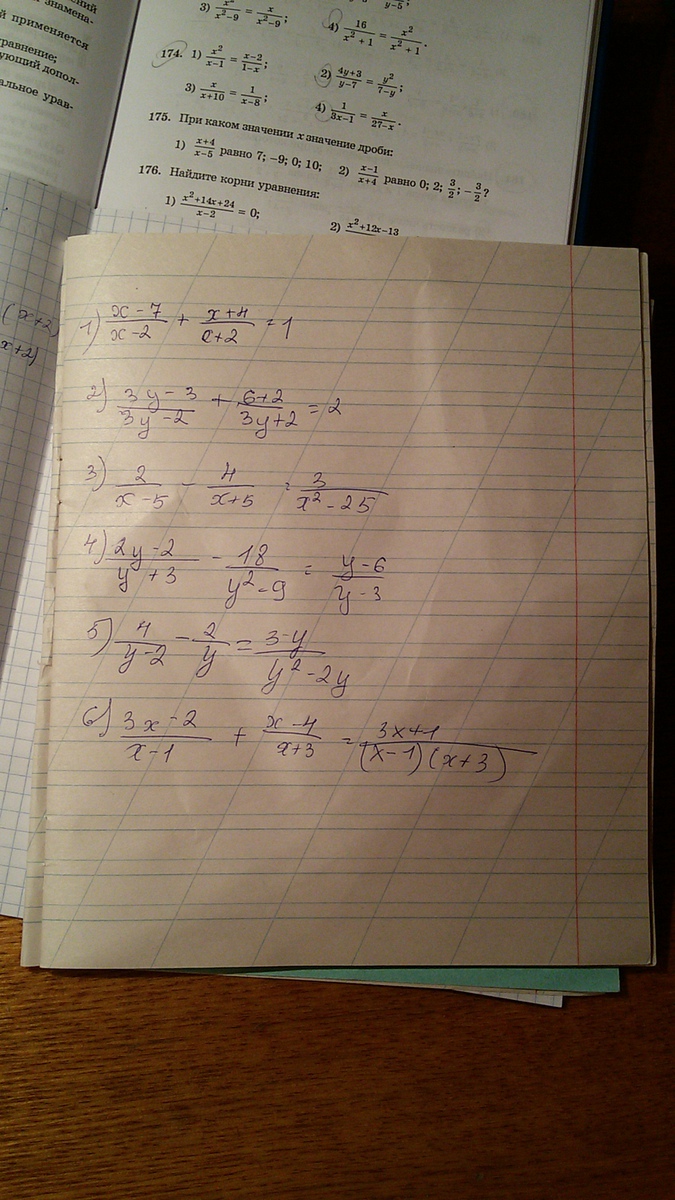 ений
знамена-
й применяется
равнение;
ующий допол-
альное урав-
y-5;
3) x²/x²-9 = x/x²-9;
4) 16/x²+1 = x²/x²+1.
174. 1) x²/x-1 = x-2/1-x;
2) 4y+3/y-7 = y²/7-y;
3) x/x+10 = 1/x-8;
4) 1/3x-1 = x/27-x.
175. При каком значении x значение дроби:
1) x+4/x-5 равно 7; -9; 0; 10; 2) x-1/x+4 равно 0; 2; 3/2; -3/2?
176. Найдите корни уравнения:
1) x²+14x+24/x-2 = 0;
2) x²+12x-13
(x+2)
x+2)
1) x-7/x-2 + x+4/x+2 = 1
2) 3y-3/3y-2 + 6+2/3y+2 = 2
3) 2/x-5 - 4/x+5 = 3/x²-25
4) 2y-2/y+3 - 18/y²-9 = y-6/y-3
5) 4/y-2 - 2/y = 3-y/y²-2y
6) 3x-2/x-1 + x-4/x+3 = 3x+1/(x-1)(x+3)